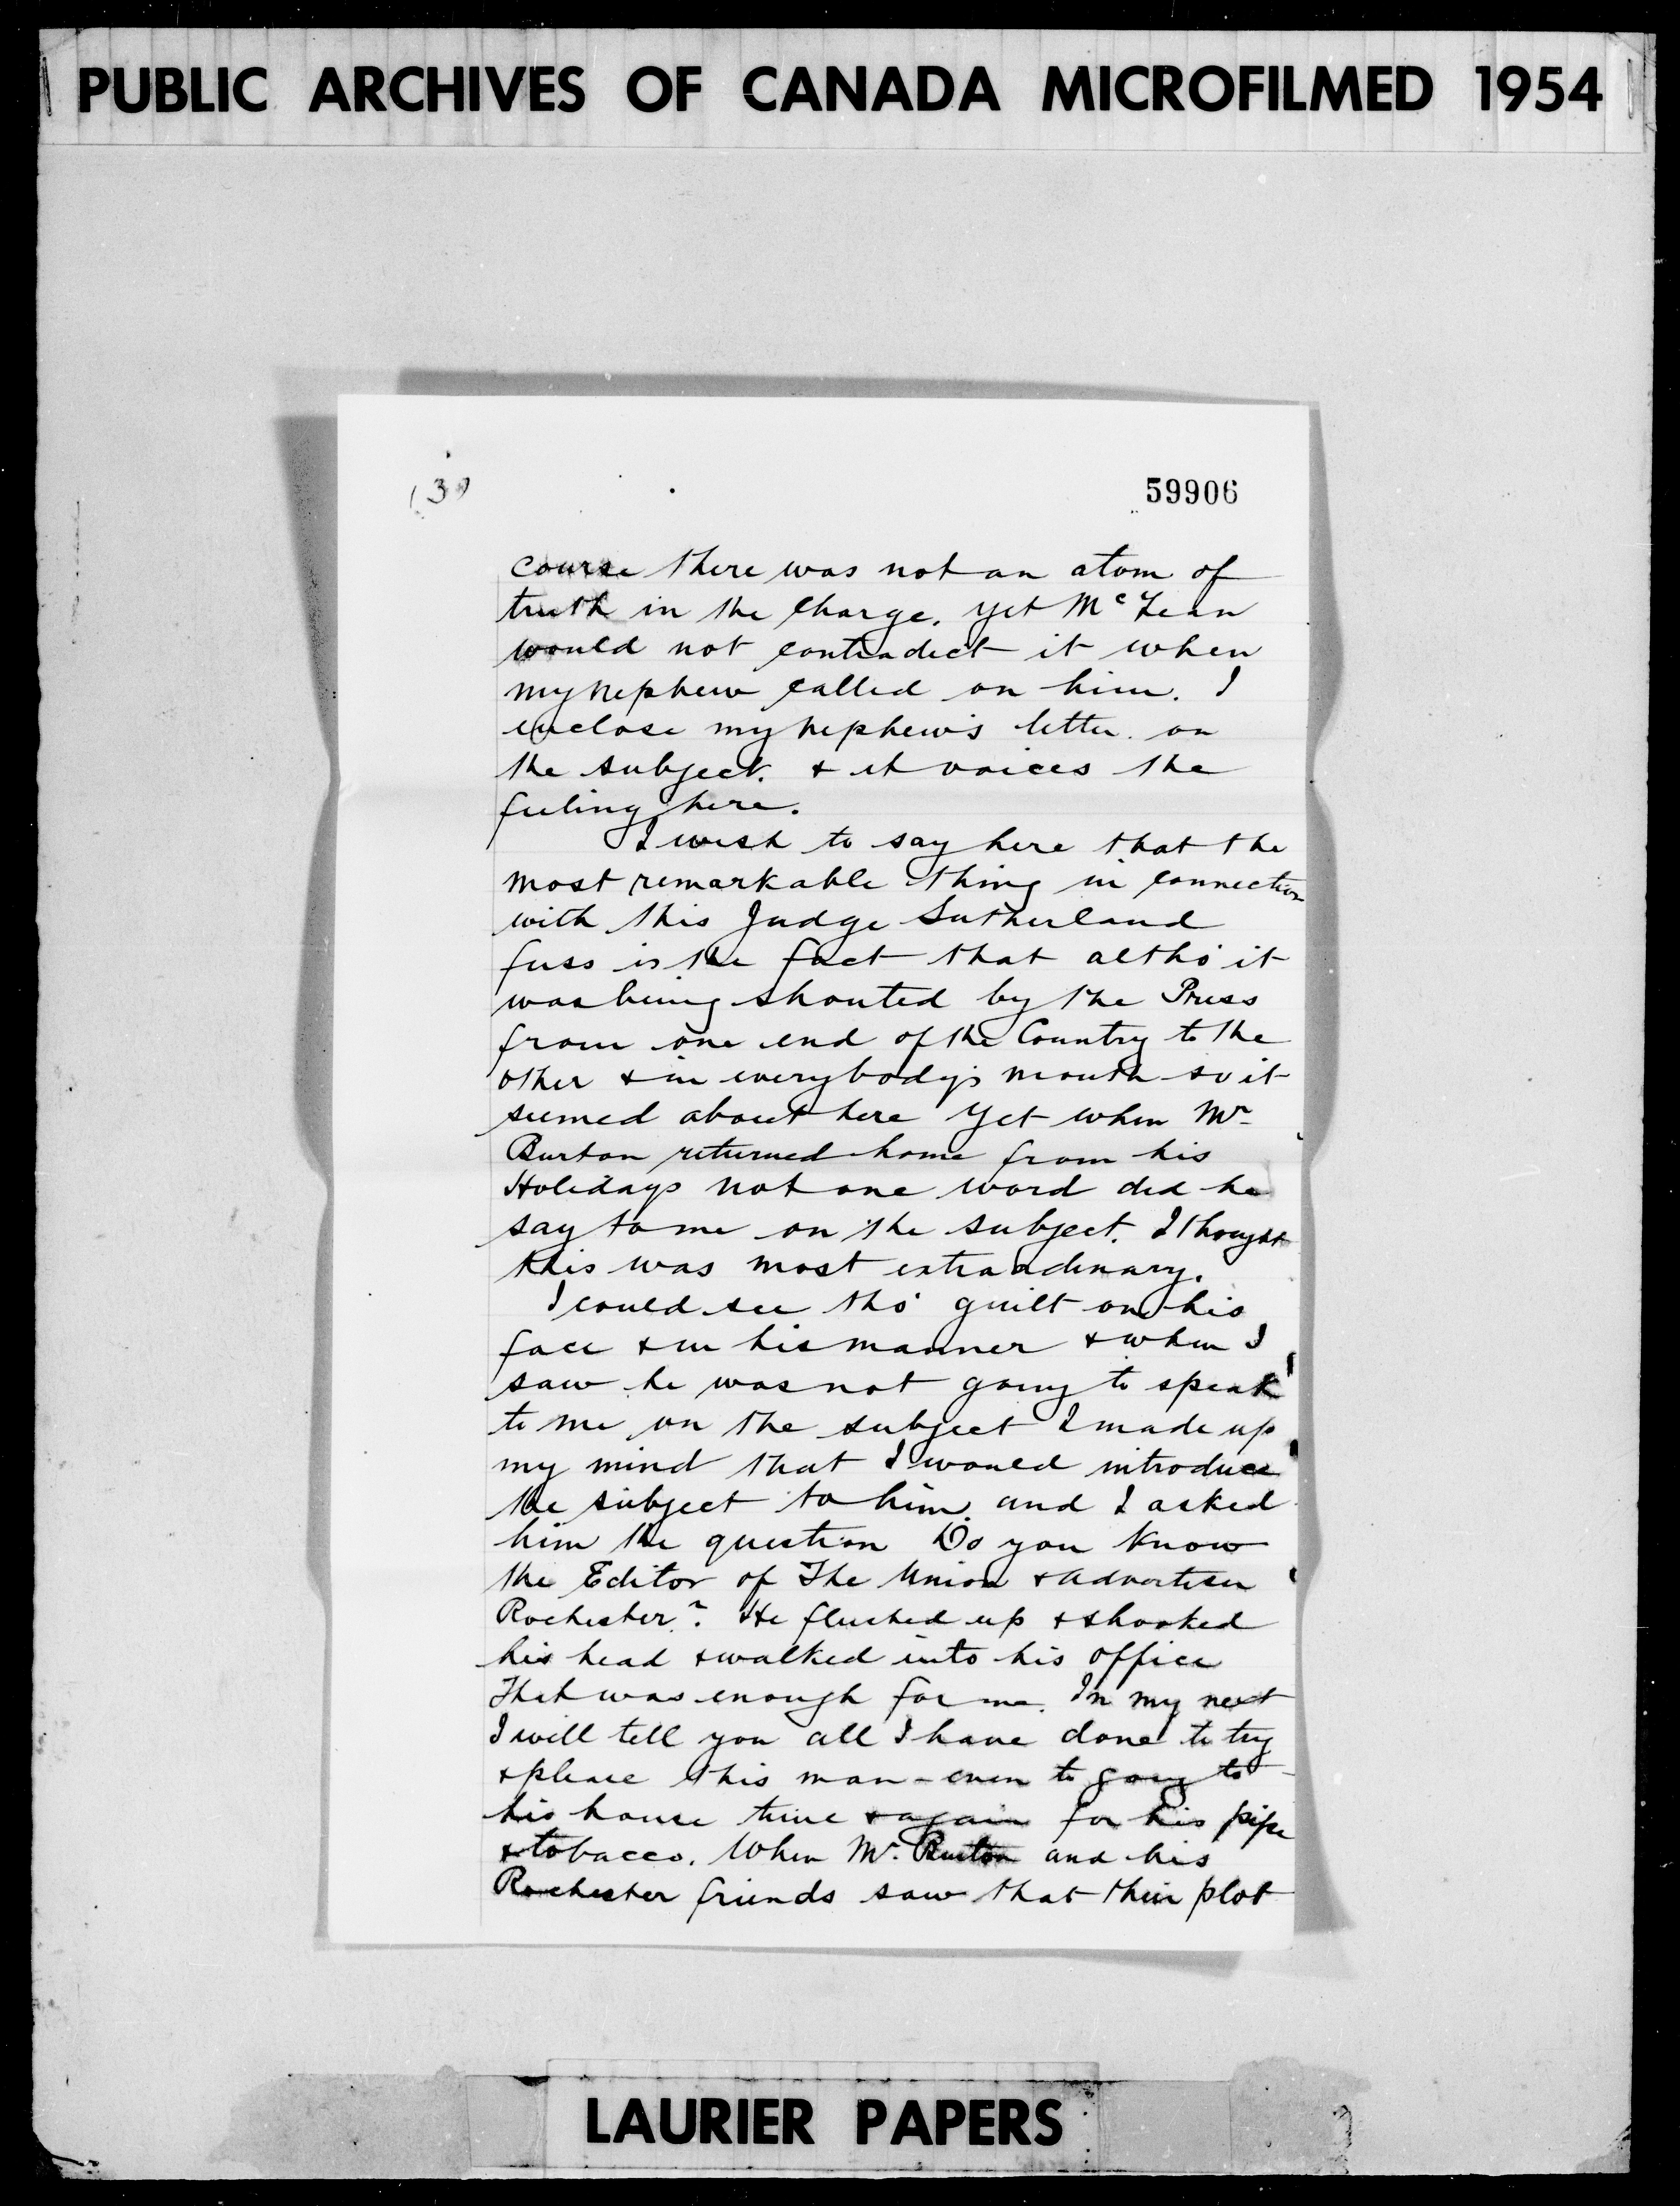 PUBLIC ARCHIVES OF CANADA MICROFILMED 1954
(3)
59906
course there was not an atom of
truth in the Charge. Yet McLean
would not contradict it when
my nephew called on him. I
enclose my nephew's letter on
the subject. & it voices the
feeling here.
I wish to say here that the
most remarkable thing in connection
with this Judge Sutherland
fuss is the fact that altho' it
was being shouted by the Press
from one end of the Country to the
other & in everybody's mouth so it
seemed about here Yet when Mr
Burton returned home from his
Holidays not one word did he
say to me on the subject. I thought
this was most extraordinary.
I could see tho' guilt on his
face & in his manner & when I
saw he was not going to speak
to me on the subject I made up
my mind that I would introduce
the subject to him and I asked
him the question Do you know
the Editor of The Union & Advertiser
Rochester? He flushed up & shooked
his head & walked into his office
That was enough for me. In my next
I will tell you all I have done to try
& please this man - even to going to
his house time & again for his pipe
& tobacco. When Mr. Burton and his
Rochester friends saw that their plot
LAURIER PAPERS